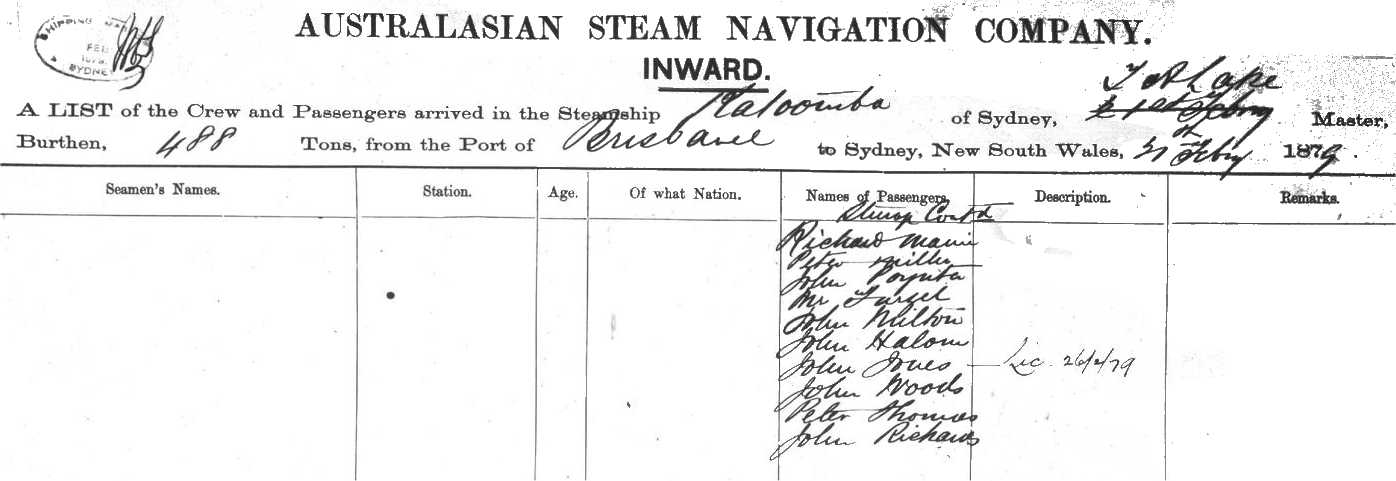 SHIPPING MA
FEB
1879
SYDNEY
AUSTRALASIAN STEAM NAVIGATION COMPANY.
INWARD.
A LIST of the Crew and Passengers arrived in the Steamship Katoomba of Sydney, T A Lake Master,
Burthen, 488 Tons, from the Port of Brisbane to Sydney, New South Wales, 21 Feby 1879.
Seamen's Names. Station. Age. Of what Nation. Names of Passengers. Description. Remarks.
Contd
Richard
Peter Miller
John Poynter
Mr
John Milton
John
John Jones — Lic 26/2/79
John Woods
Peter Thomas
John Richards